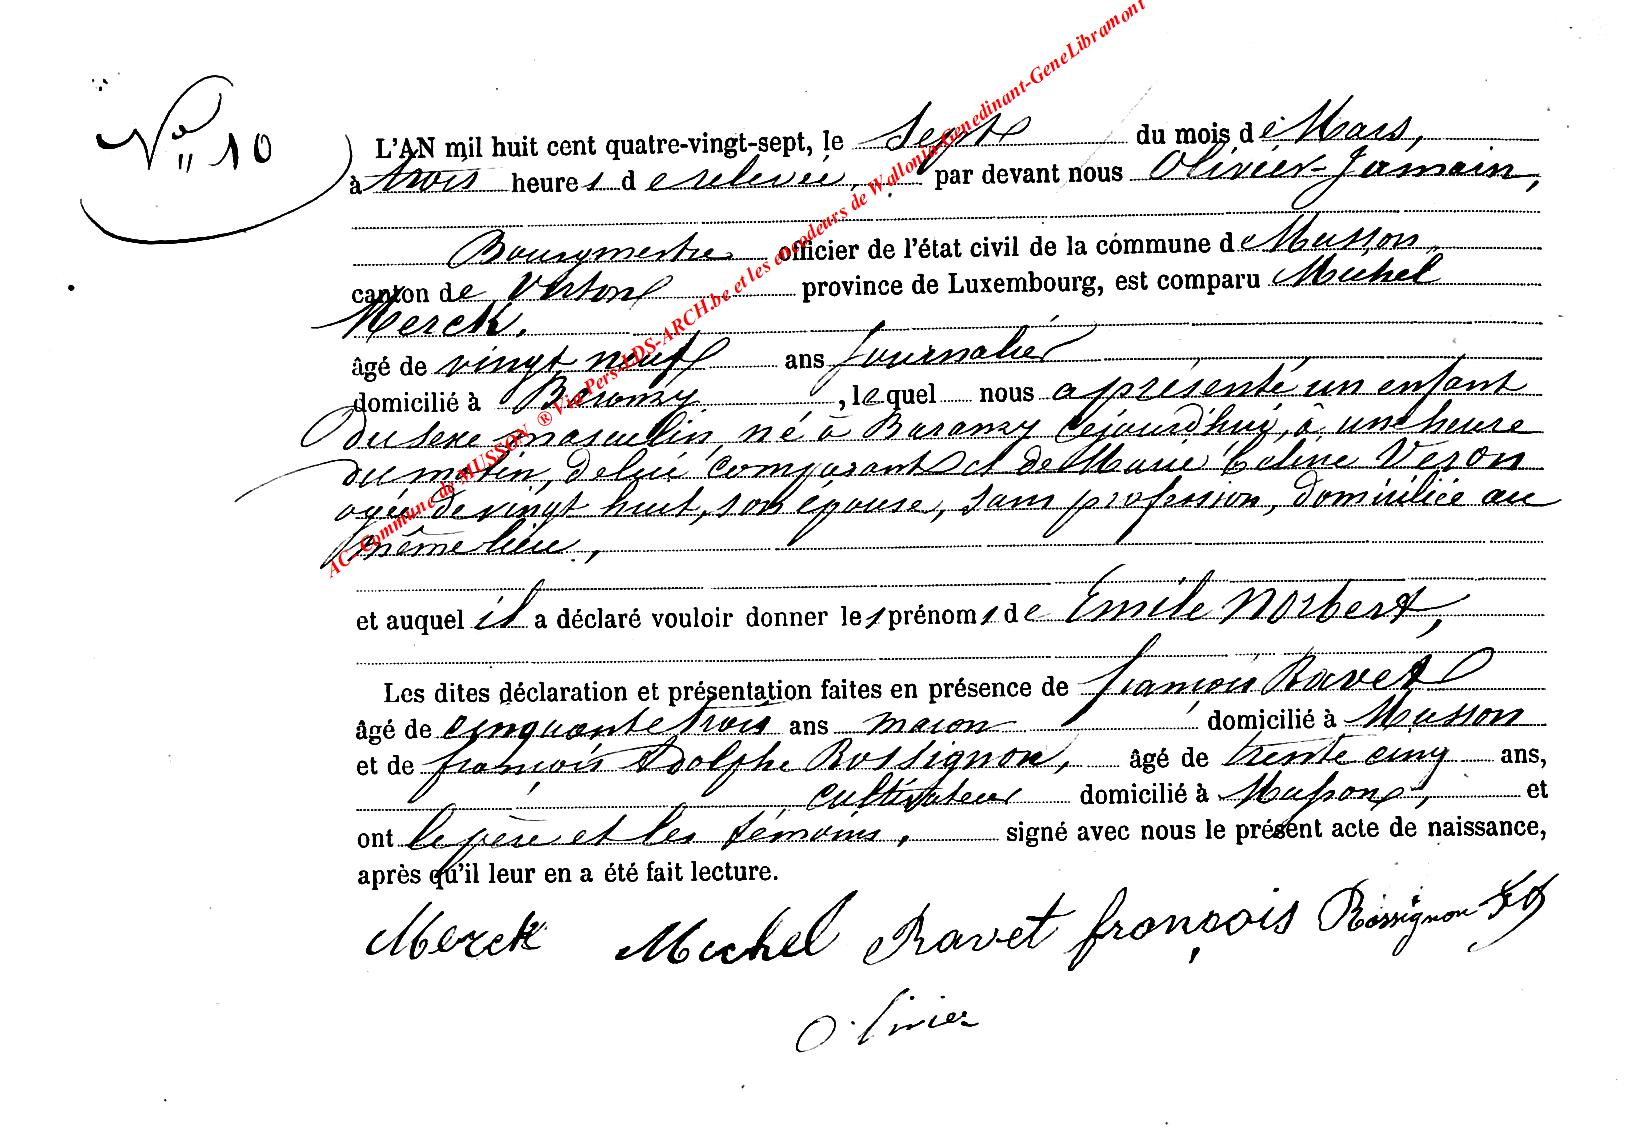 N° 10
L'AN mil huit cent quatre-vingt-sept, le sept du mois de Mars,
à trois heures de relevée, par devant nous Olivier-Jamain,
Bourgmestre officier de l'état civil de la commune de Musson,
canton de Virton province de Luxembourg, est comparu Michel
Merck,
âgé de vingt neuf ans Journalier
domicilié à Baranzy, lequel nous a présenté un enfant
du sexe masculin, né à Baranzy cejourd'hui, à une heure
du matin, de lui comparant et de Marie Céline Veron
agée de vingt huit, son épouse, sans profession, domiciliée au
même lieu,
et auquel il a déclaré vouloir donner les prénoms de Emile Norbert,
Les dites déclaration et présentation faites en présence de françois Ravet
âgé de cinquante trois ans maçon domicilié à Musson
et de françois Adolphe Rossignon, âgé de trente cinq ans,
cultivateur domicilié à Musson, et
ont le père et les témoins, signé avec nous le présent acte de naissance,
après qu'il leur en a été fait lecture.
Merck Michel Ravet françois Rossignon
Olivier
AC-Commune de MUSSON ® Via Pers-LDS-ARCH.be et les encodeurs de Wallonia-Genedinant-GeneLibramont